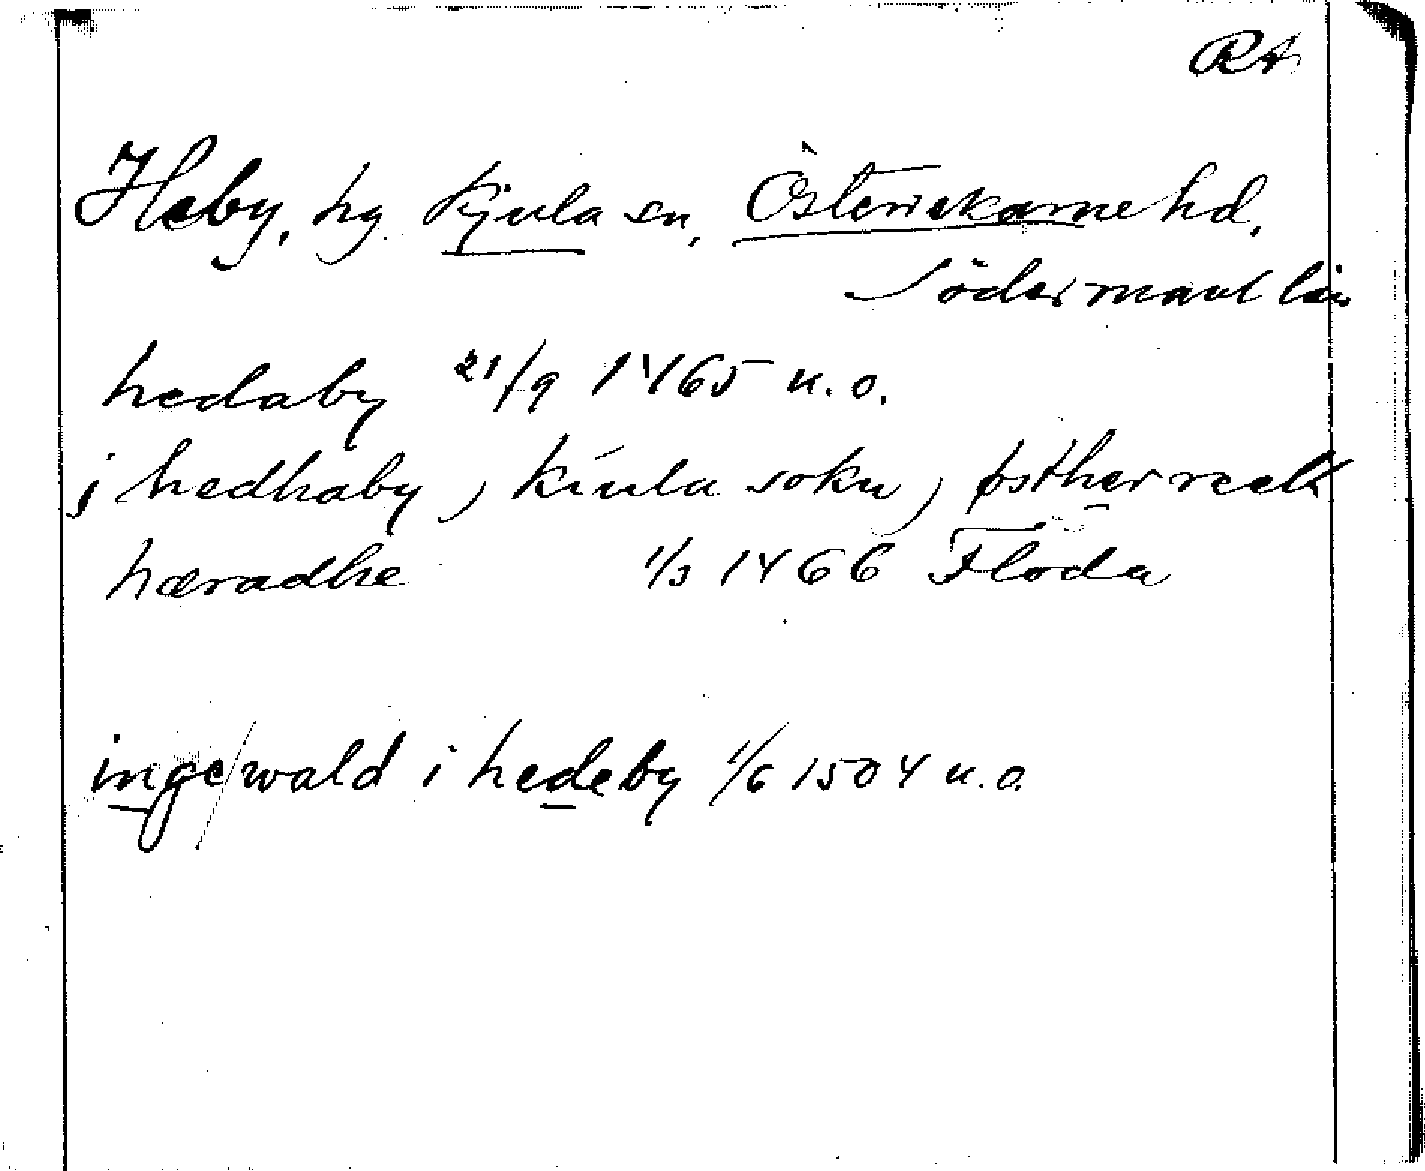 RA
Heby, hg. Kjula sn, Österrekarne hd,
Södermanl län
hedaby 21/9 1465 u.o.
j hedhaby, kiula sokn, østherrect
hæradhe 1/3 1466 Floda
inge/wald i hedeby 1/6 1504 u.o.